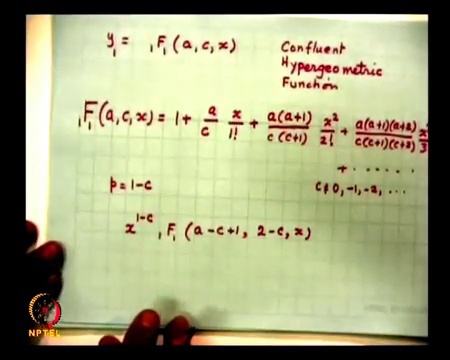 y₁ = ₁F₁ (a, c, x) Confluent
Hypergeometric
Function
₁F₁(a, c, x) = 1 + a/c x/1! + a(a+1)/c(c+1) x²/2! + a(a+1)(a+2)/c(c+1)(c+2) x³/3!
+ . . . . . .
p = 1-c c ≠ 0, -1, -2, ...
x^(1-c) ₁F₁ (a-c+1, 2-c, x)
NPTEL